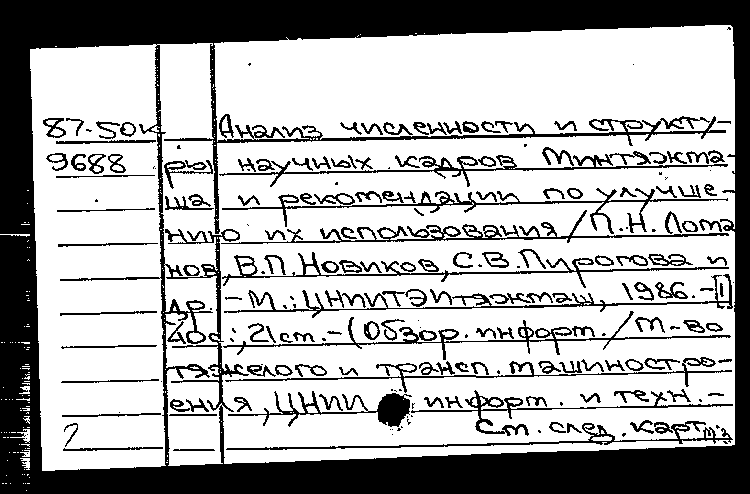 87-50к Анализ численности и структу-
9688 ры научных кадров Минтяжма-
ша и рекомендации по улучше-
нию их использования / П.Н. Лома
нов, В.П. Новиков, С.В. Пирогова и
др. - М.: ЦНИИТЭИтяжмаш, 1986. - [1]
40с.; 21см. - (Обзор. информ. / М-во
тяжелого и трансп. машиностро-
ения, ЦНИИ информ. и техн. -
См. след. карт.